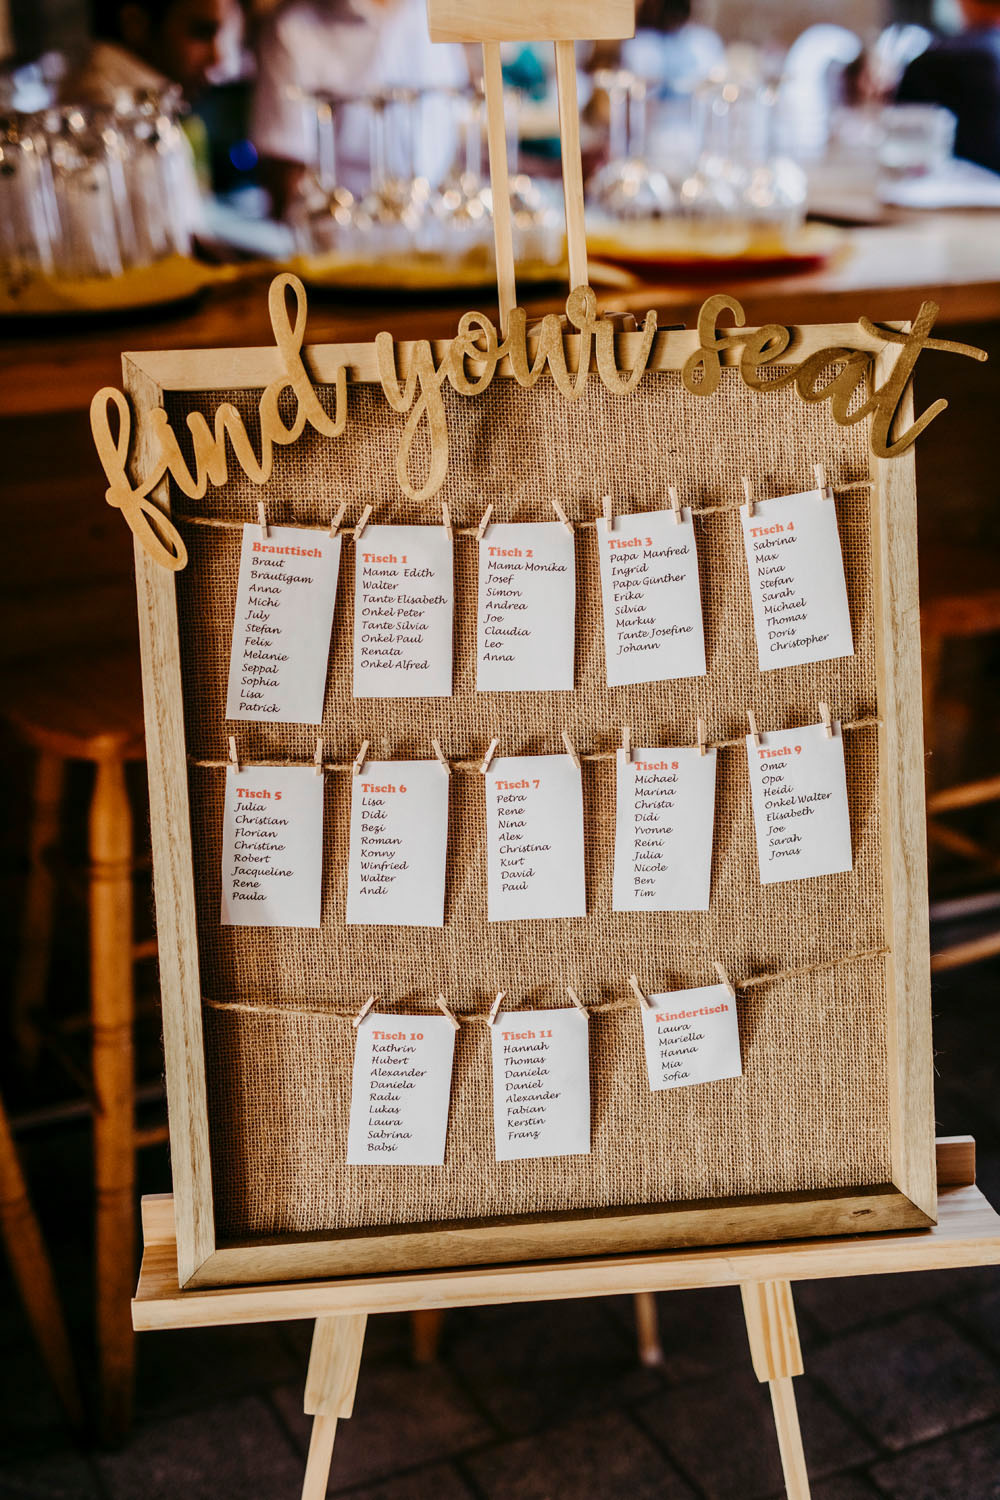 find your seat
Brauttisch
Braut
Bräutigam
Anna
Michi
July
Stefan
Felix
Melanie
Seppal
Sophia
Lisa
Patrick
Tisch 1
Mama Edith
Walter
Tante Elisabeth
Onkel Peter
Tante Silvia
Onkel Paul
Renata
Onkel Alfred
Tisch 2
Mama Monika
Josef
Simon
Andrea
Joe
Claudia
Leo
Anna
Tisch 3
Papa Manfred
Ingrid
Papa Günther
Erika
Silvia
Markus
Tante Josefine
Johann
Tisch 4
Sabrina
Max
Nina
Stefan
Sarah
Michael
Thomas
Doris
Christopher
Tisch 5
Julia
Christian
Florian
Christine
Robert
Jacqueline
Rene
Paula
Tisch 6
Lisa
Didi
Bezi
Roman
Konny
Winfried
Walter
Andi
Tisch 7
Petra
Rene
Nina
Alex
Christina
Kurt
David
Paul
Tisch 8
Michael
Marina
Christa
Didi
Yvonne
Reini
Julia
Nicole
Ben
Tim
Tisch 9
Oma
Opa
Heidi
Onkel Walter
Elisabeth
Joe
Sarah
Jonas
Tisch 10
Kathrin
Hubert
Alexander
Daniela
Radu
Lukas
Laura
Sabrina
Babsi
Tisch 11
Hannah
Thomas
Daniela
Daniel
Alexander
Fabian
Kerstin
Franz
Kindertisch
Laura
Mariella
Hanna
Mia
Sofia